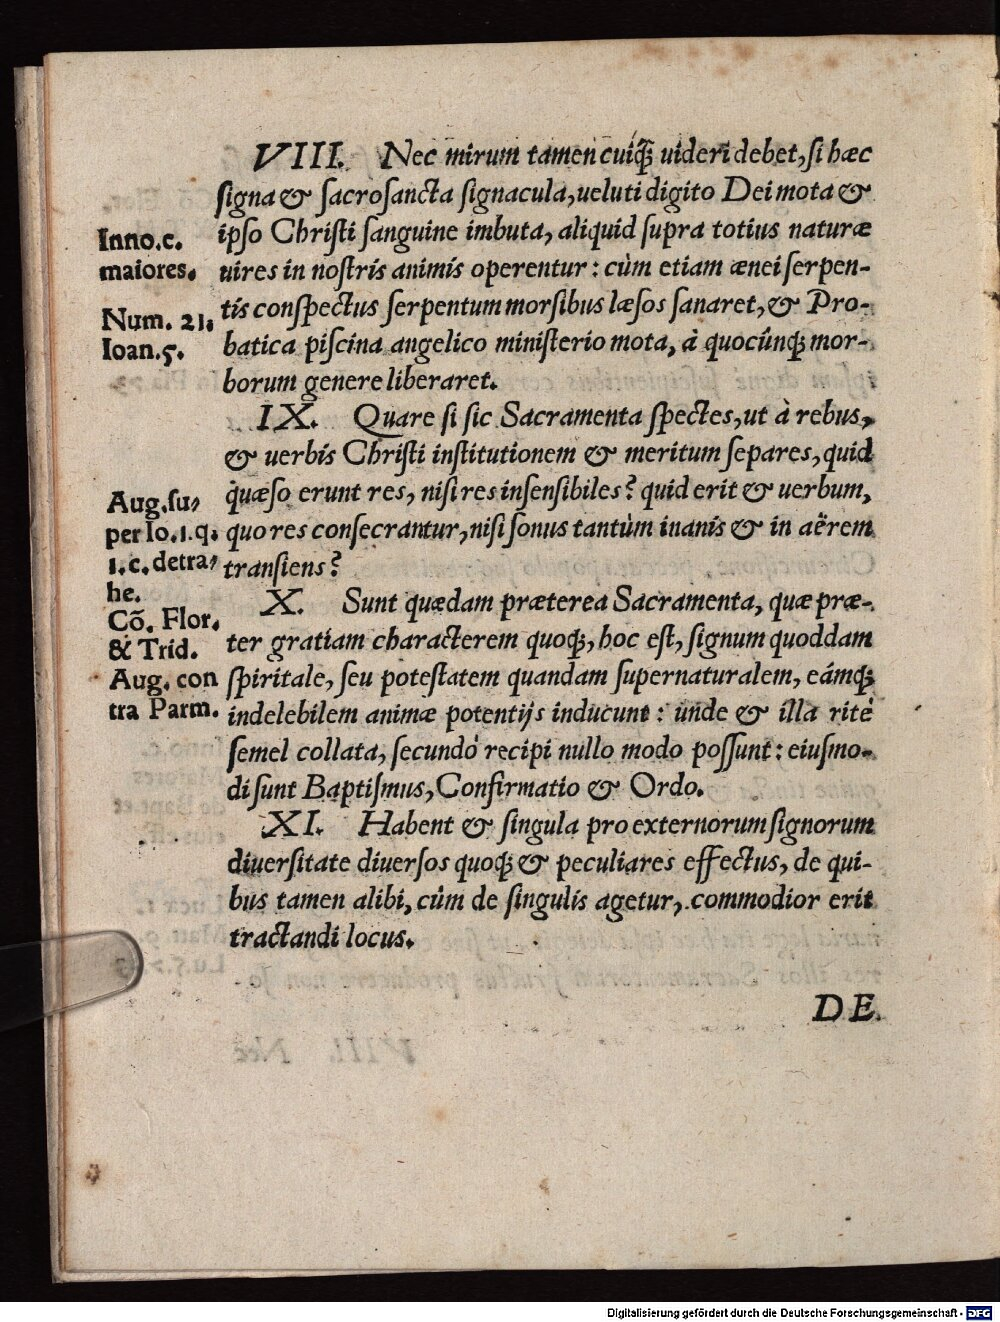 VIII. Nec mirum tamen cuiq́ꝫ uideri debet, si hæc
signa & sacrosancta signacula, ueluti digito Dei mota &
ipso Christi sanguine imbuta, aliquid supra totius naturæ
uires in nostris animis operentur: cùm etiam ænei serpen-
tis conspectus serpentum morsibus læsos sanaret, & Pro-
batica piscina angelico ministerio mota, à quocũnqꝫ mor-
borum genere liberaret.
Inno.c.
maiores.
Num. 21.
Ioan.5.
IX. Quare si sic Sacramenta spectes, ut à rebus,
& uerbis Christi institutionem & meritum separes, quid
quæso erunt res, nisi res insensibiles? quid erit & uerbum,
quo res consecrantur, nisi sonus tantùm inanis & in aërem
transiens?
Aug.su-
per Io.1.q.
1.c.detra-
he.
X. Sunt quædam præterea Sacramenta, quæ præ-
ter gratiam characterem quoqꝫ, hoc est, signum quoddam
spiritale, seu potestatem quandam supernaturalem, eámqꝫ
indelebilem animæ potentijs inducunt: unde & illa ritè
semel collata, secundò recipi nullo modo possunt: eiusmo-
di sunt Baptismus, Confirmatio & Ordo.
Cõ. Flor.
& Trid.
Aug. con
tra Parm.
XI. Habent & singula pro externorum signorum
diuersitate diuersos quoqꝫ & peculiares effectus, de qui-
bus tamen alibi, cùm de singulis agetur, commodior erit
tractandi locus.
DE
Digitalisierung gefördert durch die Deutsche Forschungsgemeinschaft - DFG